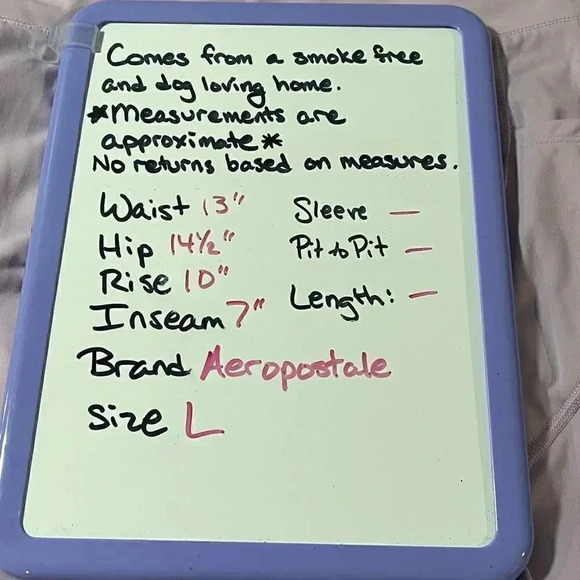 Comes from a smoke free
and dog loving home.
*Measurements are
approximate*
No returns based on measures.
Waist 13" Sleeve —
Hip 14½" Pit to Pit —
Rise 10" Length: —
Inseam 7"
Brand Aeropostale
Size L